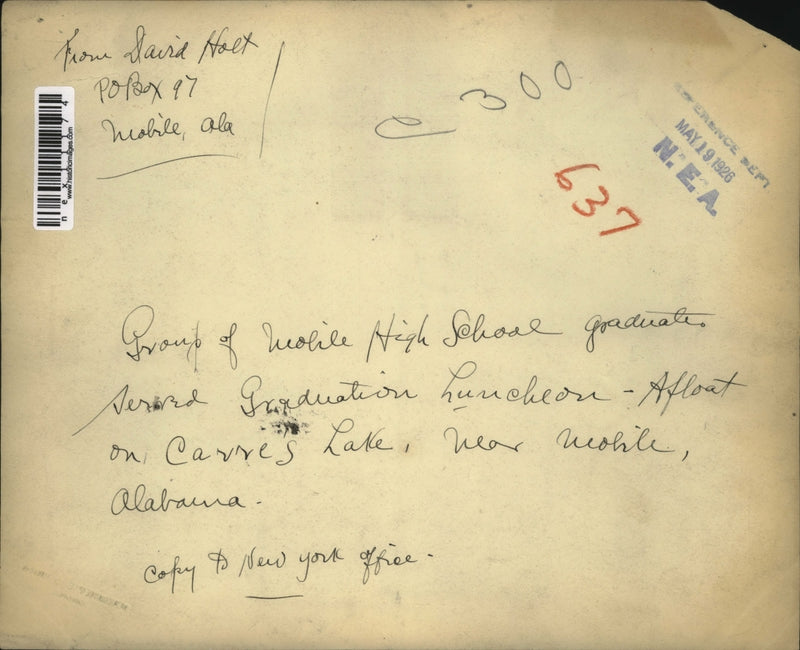 From David Holt
PO Box 97
Mobile, Ala
300
637
MAY 19 1926
N.E.A.
www.historicimages.com
Group of Mobile High School graduates
served Graduation Luncheon - Afloat
on Carres Lake, Near Mobile,
Alabama.
Copy to New York office.